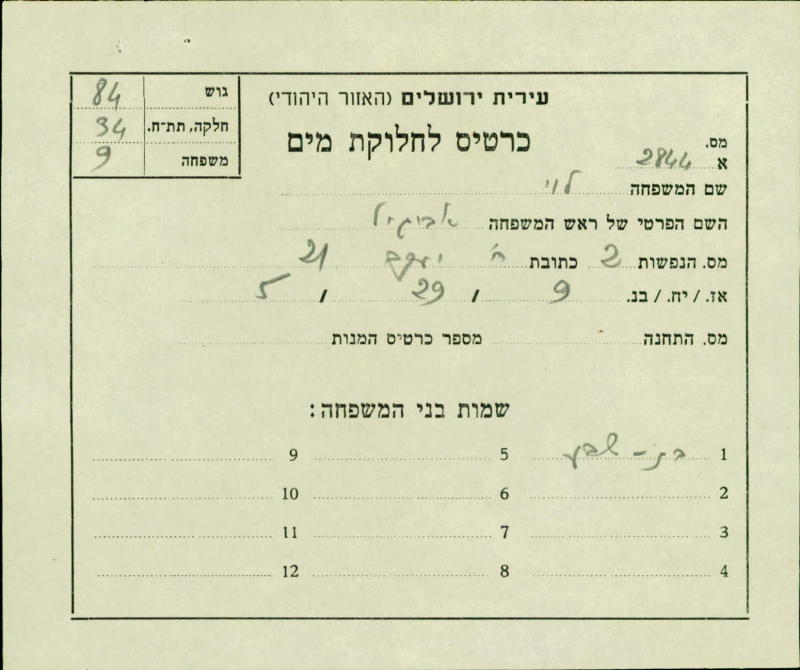 עירית ירושלים (האזור היהודי)
כרטיס לחלוקת מים
גוש 84
חלקה, תת־ח. 34
משפחה 9
מס. א 2844
שם המשפחה לוי
השם הפרטי של ראש המשפחה אביגיל
מס. הנפשות 2 כתובת רח' יעקב 21
אז. / יח. / בנ. 9 / 29 / 5
מס. התחנה מספר כרטיס המנות
שמות בני המשפחה:
1 בת-שבע 5 9
2 6 10
3 7 11
4 8 12